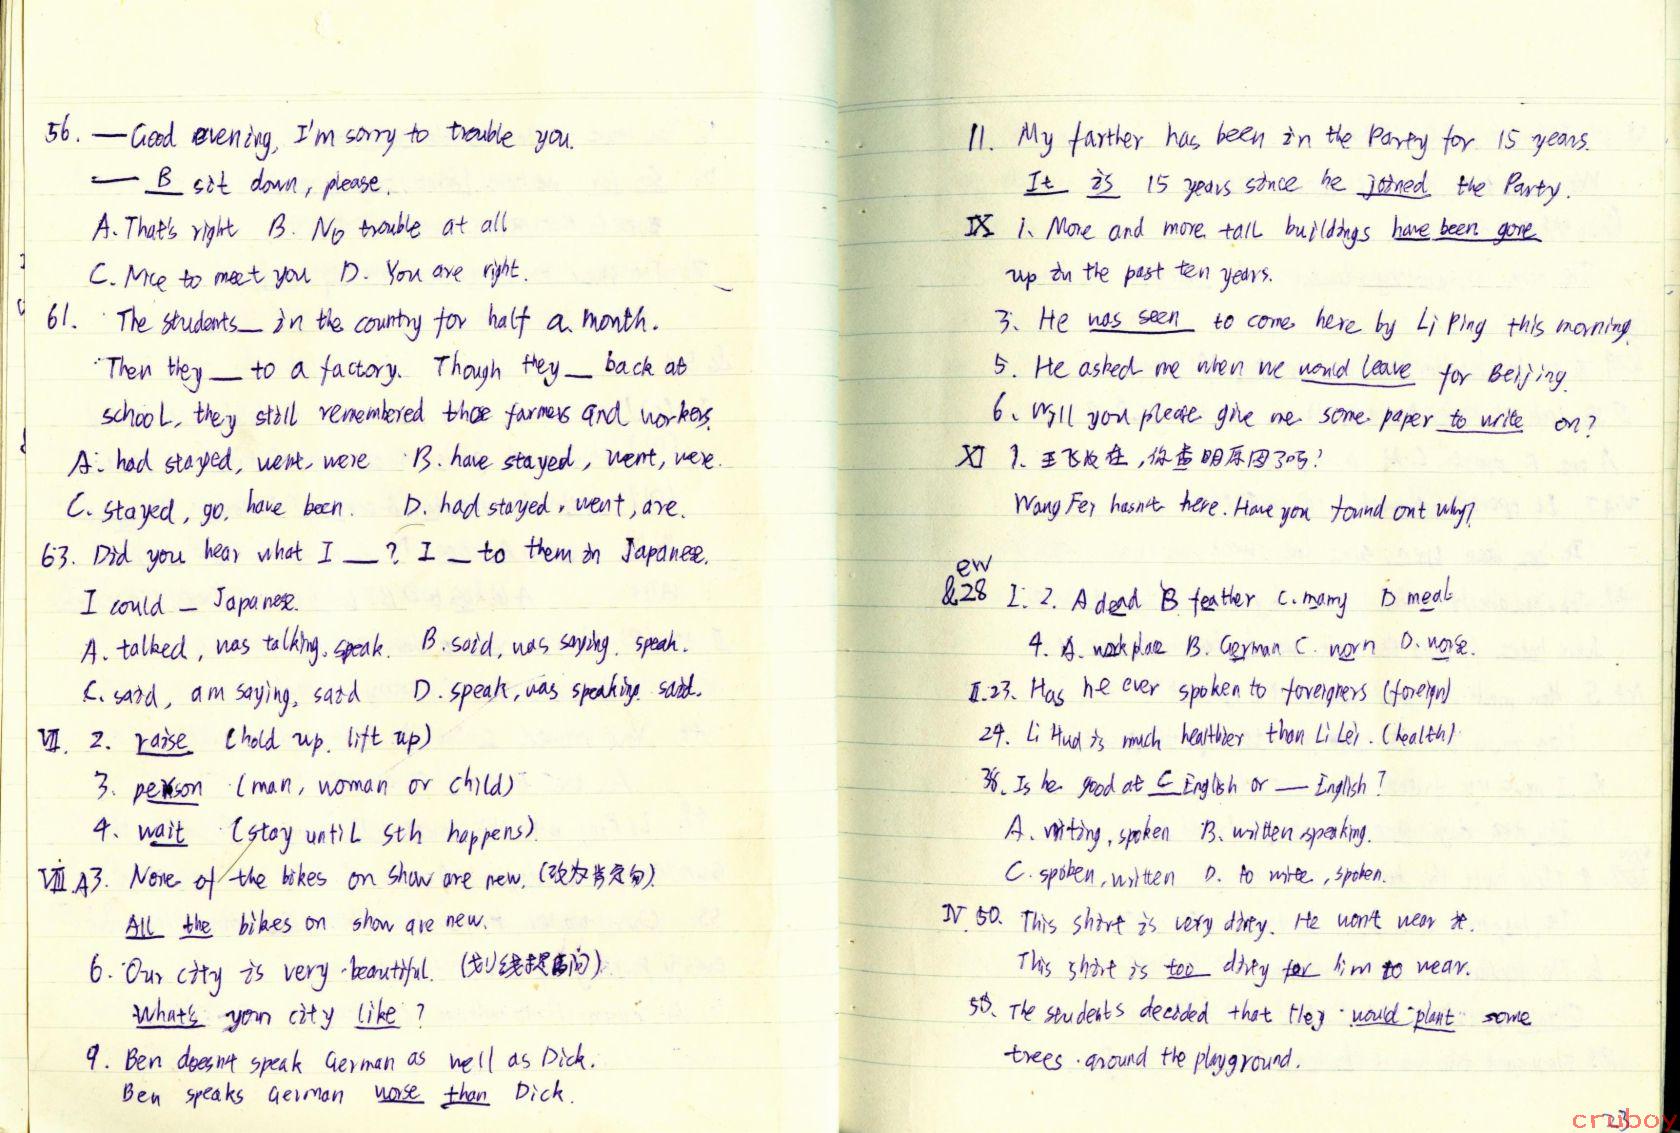 56. — Good evening, I'm sorry to trouble you.
— B sit down, please.
A. That's right B. No trouble at all
C. Nice to meet you D. You are right.
61. The students__ in the country for half a month.
Then they __ to a factory. Though they __ back at
school, they still remembered those farmers and workers.
A. had stayed, went, were B. have stayed, went, were.
C. stayed, go, have been. D. had stayed, went, are.
63. Did you hear what I __? I __ to them in Japanese.
I could __ Japanese.
A. talked, was talking, speak. B. said, was saying, speak.
C. said, am saying, said D. speak, was speaking, said.
VII. 2. raise (hold up, lift up)
3. person (man, woman or child)
4. wait (stay until sth happens)
VIII. A3. None of the bikes on show are new. (改为肯定句)
All the bikes on show are new.
6. Our city is very beautiful. (划线提问)
What's your city like ?
9. Ben doesn't speak German as well as Dick.
Ben speaks German worse than Dick.
11. My farther has been in the Party for 15 years.
It is 15 years since he joined the Party.
IX 1. More and more tall buildings have been gone
up in the past ten years.
3. He was seen to come here by Li Ping this morning.
5. He asked me when we would leave for Beijing.
6. Will you please give me some paper to write on?
XI 1. 王飞没在,你查明原因了吗?
Wang Fei hasn't here. Have you found out why?
ew
&28 I. 2. A dead B. feather C. many D meal
4. A. workplace B. German C. worn D. worse.
II. 23. Has he ever spoken to foreigners (foreign)
24. Li Hua is much healthier than Li Lei. (health)
38. Is he good at C English or __ English?
A. writing, spoken B. written speaking.
C. spoken, written D. to write, spoken.
IV. 50. This shirt is very dirty. He won't wear it.
This shirt is too dirty for him to wear.
55. The students decided that they would plant some
trees around the playground.
23
cruboy